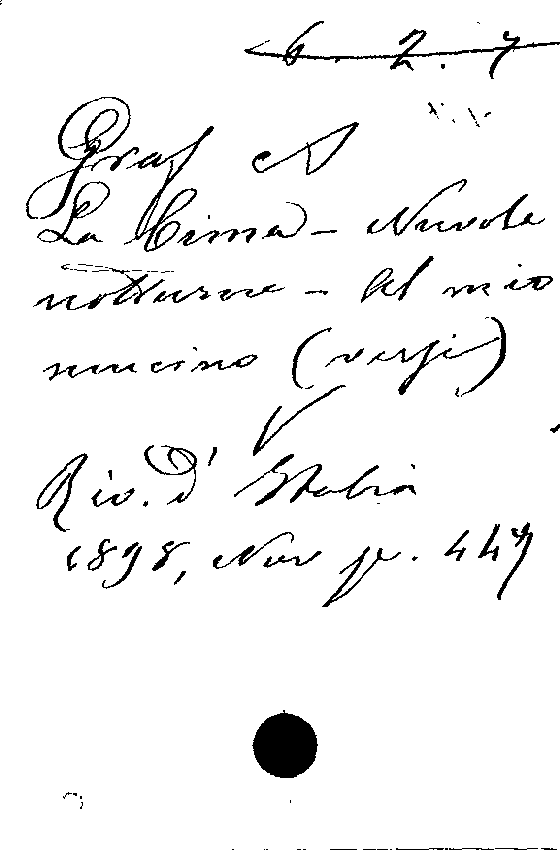 6. 2. 7
Graf A
La Cima - Nuvole
notturne - Al mio
mucino (versi)
Riv. d' Italia
1898, Nov p. 447